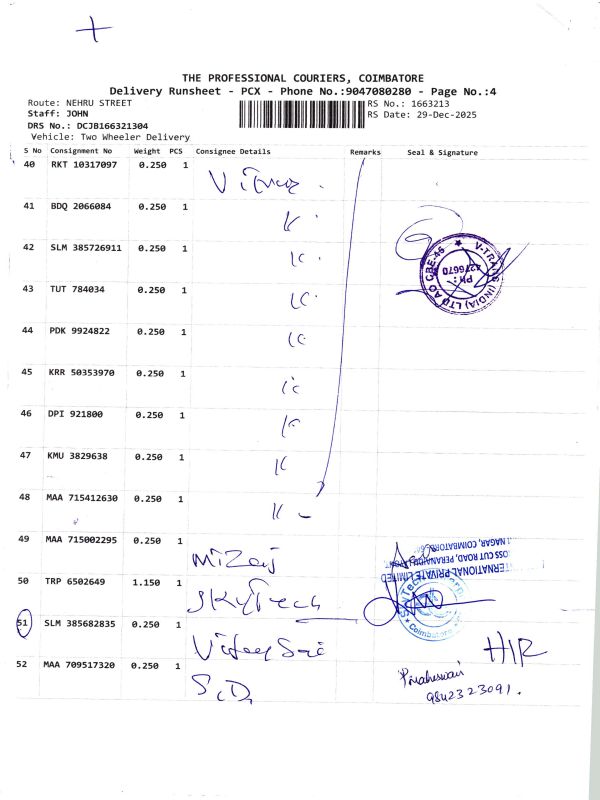 THE PROFESSIONAL COURIERS, COIMBATORE
Delivery Runsheet - PCX - Phone No.:9047080280 - Page No.:4
Route: NEHRU STREET
Staff: JOHN
DRS No.: DCJB166321304
Vehicle: Two Wheeler Delivery
RS No.: 1663213
RS Date: 29-Dec-2025
S No Consignment No Weight PCS Consignee Details Remarks Seal & Signature
40 RKT 10317097 0.250 1
41 BDQ 2066084 0.250 1
42 SLM 385726911 0.250 1
43 TUT 784034 0.250 1
44 PDK 9924822 0.250 1
45 KRR 50353970 0.250 1
46 DPI 921800 0.250 1
47 KMU 3829638 0.250 1
48 MAA 715412630 0.250 1
49 MAA 715002295 0.250 1
50 TRP 6502649 1.150 1 SKYTech
51 SLM 385682835 0.250 1
52 MAA 709517320 0.250 1 S.D,
V-TRANS (INDIA) LTD AO CBE-45
PH : 4276670
Coimbatore
9842323091.